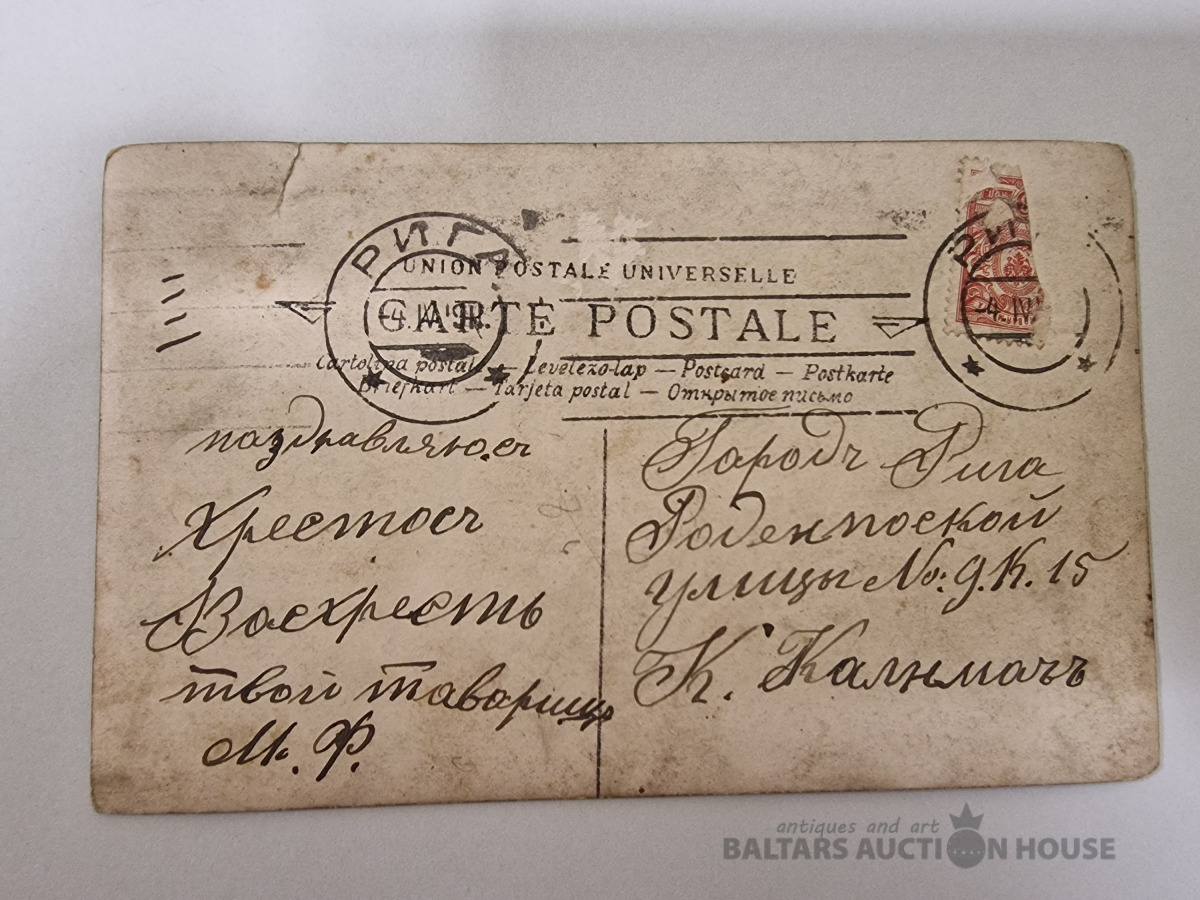 РИГА
РИГ
UNION POSTALE UNIVERSELLE
-4.IV.191
-4.IV.
CARTE POSTALE
Cartolina postale — Levelezo-lap — Postcard — Postkarte
Briefkart — Tarjeta postal — Открытое письмо
поздравляю.съ
Хрестосъ
Васкресть
твой таварищъ
М. Ф.
Городъ Рига
Роденпоской
улицы № 9. К. 15
К. Калнмачъ
antiques and art
BALTARS AUCTION HOUSE